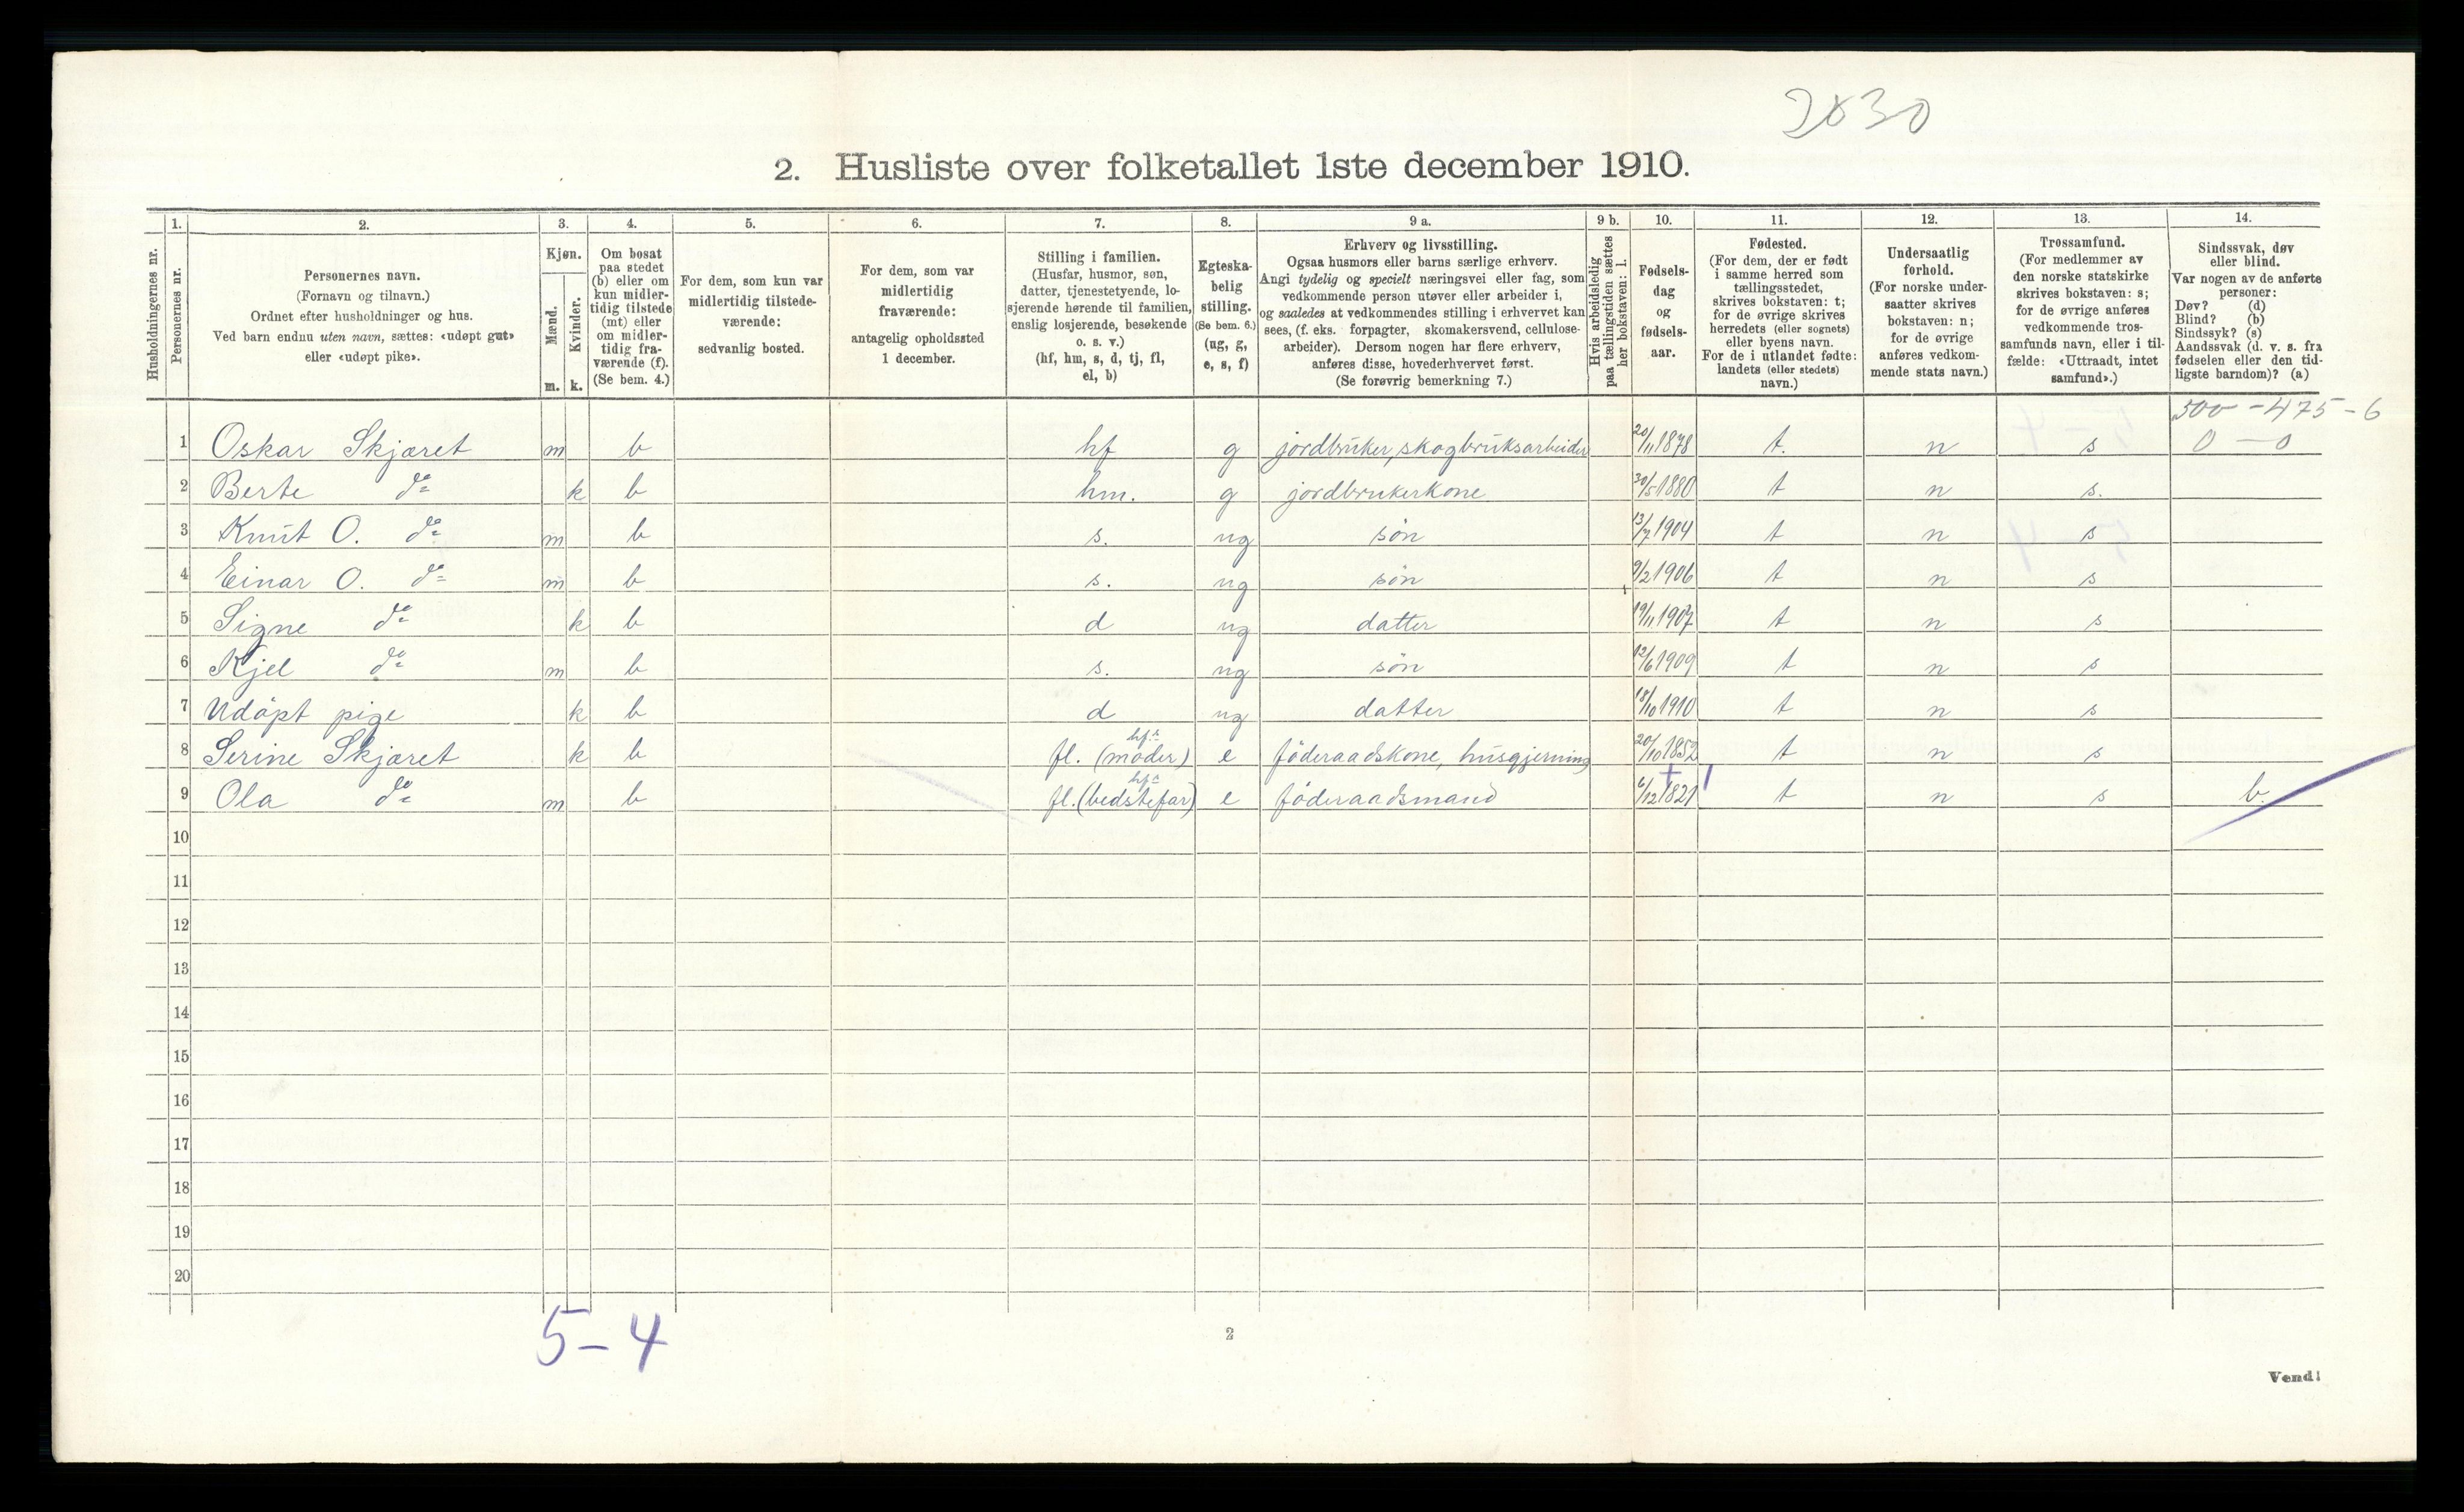 2830
2. Husliste over folketallet 1ste december 1910.
Husholdningernes nr.
1. Personernes nr.
2. Personernes navn. (Fornavn og tilnavn.) Ordnet efter husholdninger og hus. Ved barn endnu uten navn, sættes: «udøpt gut» eller «udøpt pike».
3. Kjøn. Mænd. m. Kvinder. k.
4. Om bosat paa stedet (b) eller om kun midlertidig tilstede (mt) eller om midlertidig fraværende (f). (Se bem. 4.)
5. For dem, som kun var midlertidig tilstedeværende: sedvanlig bosted.
6. For dem, som var midlertidig fraværende: antagelig opholdssted 1 december.
7. Stilling i familien. (Husfar, husmor, søn, datter, tjenestetyende, losjerende hørende til familien, enslig losjerende, besøkende o. s. v.) (hf, hm, s, d, tj, fl, el, b)
8. Egteskabelig stilling. (Se bem. 6.) (ug, g, e, s, f)
9 a. Erhverv og livsstilling. Ogsaa husmors eller barns særlige erhverv. Angi tydelig og specielt næringsvei eller fag, som vedkommende person utøver eller arbeider i, og saaledes at vedkommendes stilling i erhvervet kan sees, (f. eks. forpagter, skomakersvend, cellulosearbeider). Dersom nogen har flere erhverv, anføres disse, hovederhvervet først. (Se forøvrig bemerkning 7.)
9 b. Hvis arbeidsledig paa tællingstiden sættes her bokstaven: l.
10. Fødselsdag og fødselsaar.
11. Fødested. (For dem, der er født i samme herred som tællingsstedet, skrives bokstaven: t; for de øvrige skrives herredets (eller sognets) eller byens navn. For de i utlandet fødte: landets (eller stedets) navn.)
12. Undersaatlig forhold. (For norske undersaatter skrives bokstaven: n; for de øvrige anføres vedkommende stats navn.)
13. Trossamfund. (For medlemmer av den norske statskirke skrives bokstaven: s; for de øvrige anføres vedkommende trossamfunds navn, eller i tilfælde: «Uttraadt, intet samfund».)
14. Sindssvak, døv eller blind. Var nogen av de anførte personer: Døv? (d) Blind? (b) Sindssyk? (s) Aandssvak (d. v. s. fra fødselen eller den tidligste barndom)? (a)
500 - 475 - 6
0 - 0
1 Oskar Skjæret m b hf g jordbruker, skogbruksarbeider 20/11 1878 t. n s
2 Berte do k b hm. g jordbrukerkone 30/5 1880 t n s.
3 Knut O. do m b s. ug søn 13/7 1904 t n s
4 Einar O. do m b s. ug søn 9/2 1906 t n s
5 Signe do k b d ug datter 19/11 1907 t n s
6 Kjel do m b s. ug søn 12/6 1909 t n s
7 Udøpt pige k b d ug datter 18/10 1910 t n s
8 Serine Skjæret k b fl. (hfs moder) e føderaadskone, husgjerning 20/10 1852 t n s
9 Ola do m b fl. (hfs bedstefar) e føderaadsmand 6/12 1821 t n s b.
10
11
12
13
14
15
16
17
18
19
20
5 - 4
2
Vend!